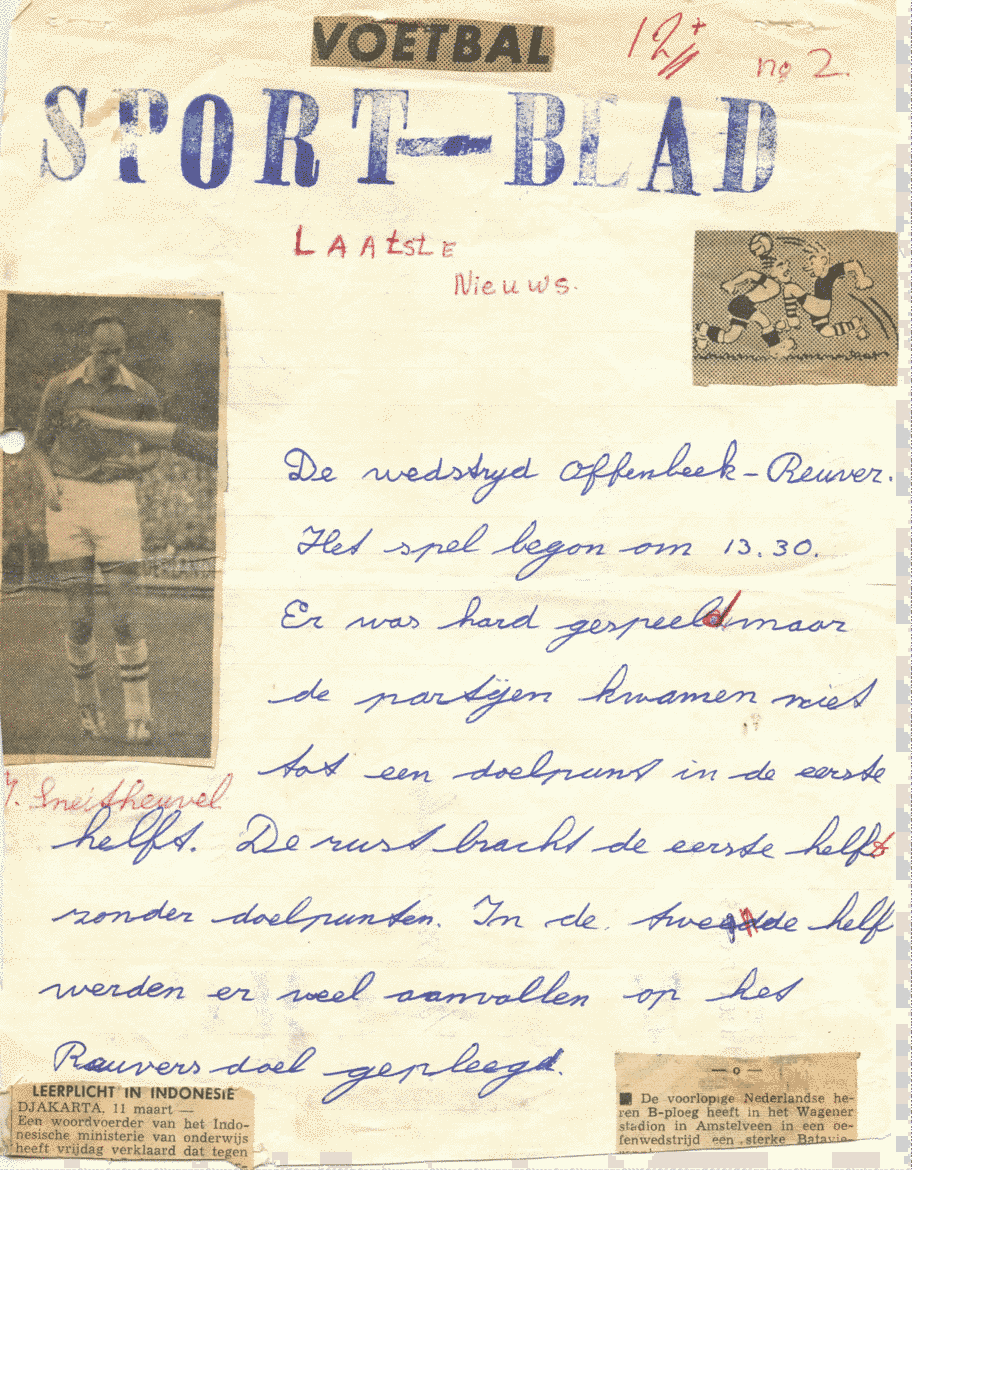 VOETBAL
12+
no 2.
SPORT-BLAD
LAAtstE
Nieuws.
De wedstryd Offenbeek-Reuver.
Het spel begon om 13.30.
Er was hard gespeeld maar
de partijen kwamen niet
tot een doelpunt in de eerste
helft. De rust bracht de eerste helft
zonder doelpunten. In de tweede helf
werden er veel aanvallen op het
Reuvers doel gepleegd.
LEERPLICHT IN INDONESIË
DJAKARTA, 11 maart —
Een woordvoerder van het Indo-
nesische ministerie van onderwijs
heeft vrijdag verklaard dat tegen
— o —
De voorlopige Nederlandse he-
ren B-ploeg heeft in het Wagener
stadion in Amstelveen in een oe-
fenwedstrijd een sterke Batavie-